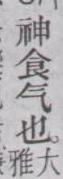 神食气也。大
雅